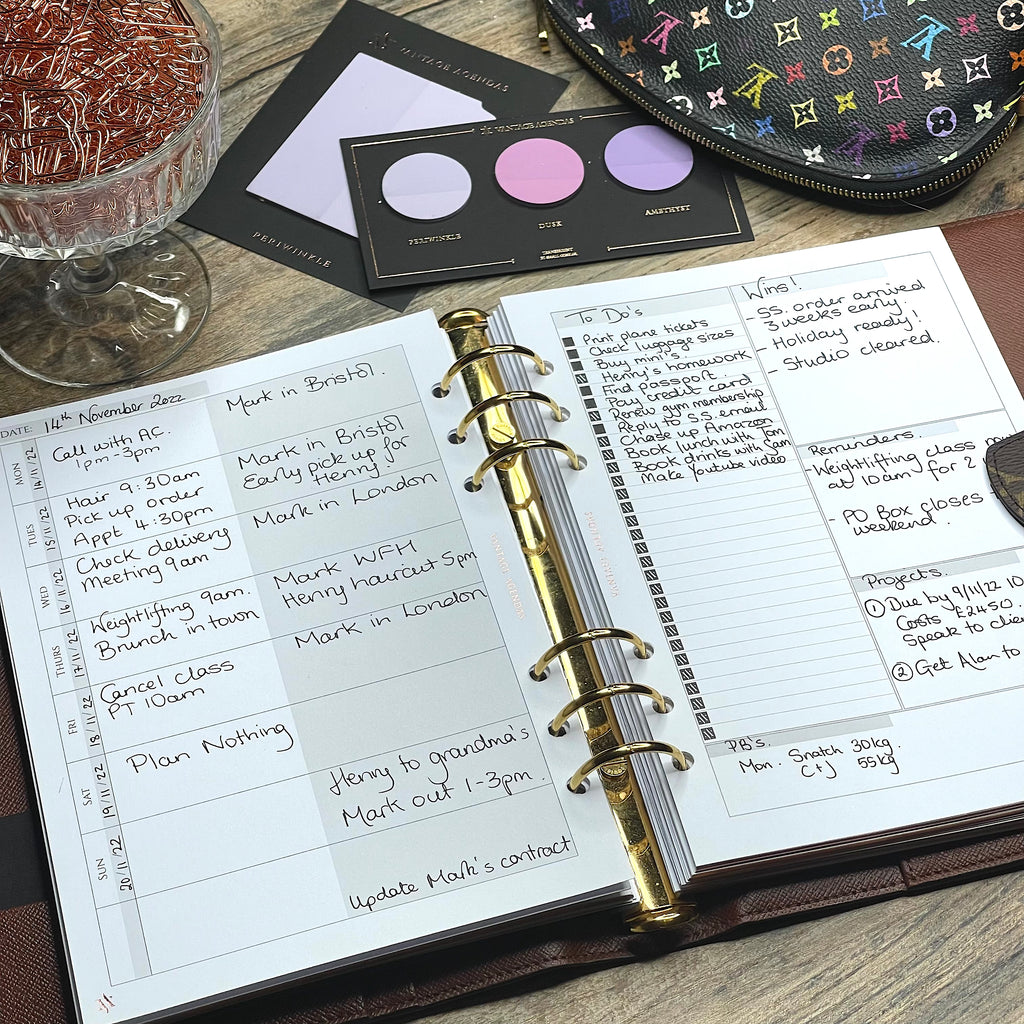 VANTAGE AGENDAS
PERIWINKLE
VANTAGE AGENDAS
PERIWINKLE
DUSK
AMETHYST
TRANSPARENT
DATE: 14th November 2022
MON 14/11/22
Call with AC.
1pm-3pm
Mark in Bristol.
TUES 15/11/22
Hair 9:30am
Pick up order
Appt 4:30pm
Mark in Bristol
Early pick up for
Henry!
WED 16/11/22
Check delivery
Meeting 9am
Mark in London
THURS 17/11/22
Weightlifting 9am.
Brunch in town
Mark WFH
Henry haircut 5pm
FRI 18/11/22
Cancel class
PT 10am
Mark in London
SAT 19/11/22
Plan Nothing
Henry to grandma's
Mark out 1-3pm.
SUN 20/11/22
Update Mark's contract
VANTAGE AGENDAS
VANTAGE AGENDAS
To Do's
Print plane tickets
Check luggage sizes
Buy mini's.
Henry's homework
Find passport.
Pay credit card
Renew gym membership
Reply to S.S. email
Chase up Amazon
Book lunch with
Book drinks with
Make Youtube video
Wins!
- S.S. order arrived
3 weeks early.
- Holiday ready!
- Studio cleared.
Reminders.
- Weightlifting class
at 10am for 2
- PO Box closes
weekend.
Projects.
1 Due by 9/11/22 10
Costs £2450.
Speak to
2 Get Alan to
PB's.
Mon. Snatch 30kg.
C+J 55kg